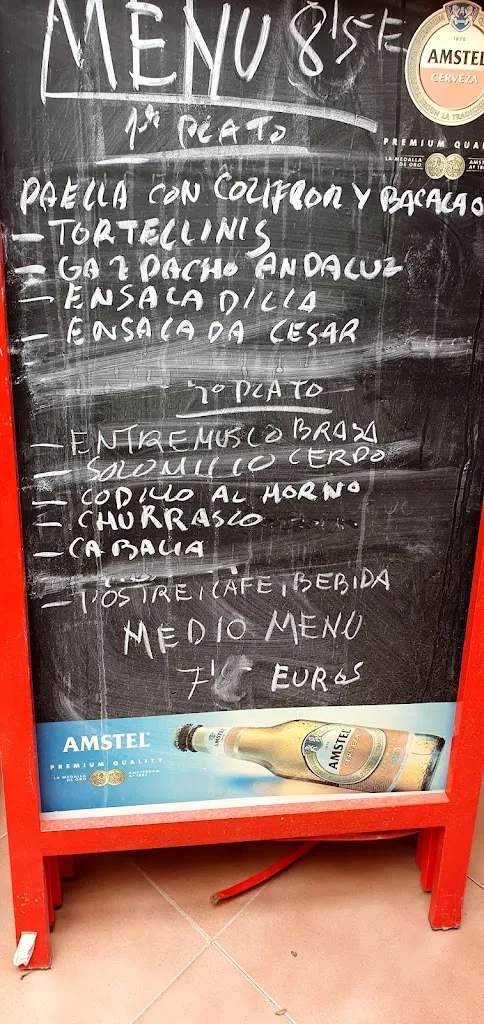 MENU 8'5E
1870
AMSTEL
CERVEZA
PREMIUM QUAL
LA MEDALLA DE ORO
1er PLATO
PAELLA CON COLIFLOR Y BACALAO
- TORTELLINIS
- GAZPACHO ANDALUZ
- ENSALADILLA
- ENSALADA CESAR
2º PLATO
- ENTREMUSLO BRASA
- SOLOMILLO CERDO
- CODILLO AL HORNO
- CHURRASCO
- CABALLA
- POSTRE, CAFE, BEBIDA
MEDIO MENU
7' EUROS
AMSTEL
PREMIUM QUALITY
LA MEDALLA DE ORO AMSTERDAM Aº 1883
AMSTEL
CERVEZA